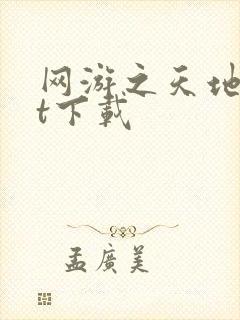 网游之天地
t下载
孟廣美